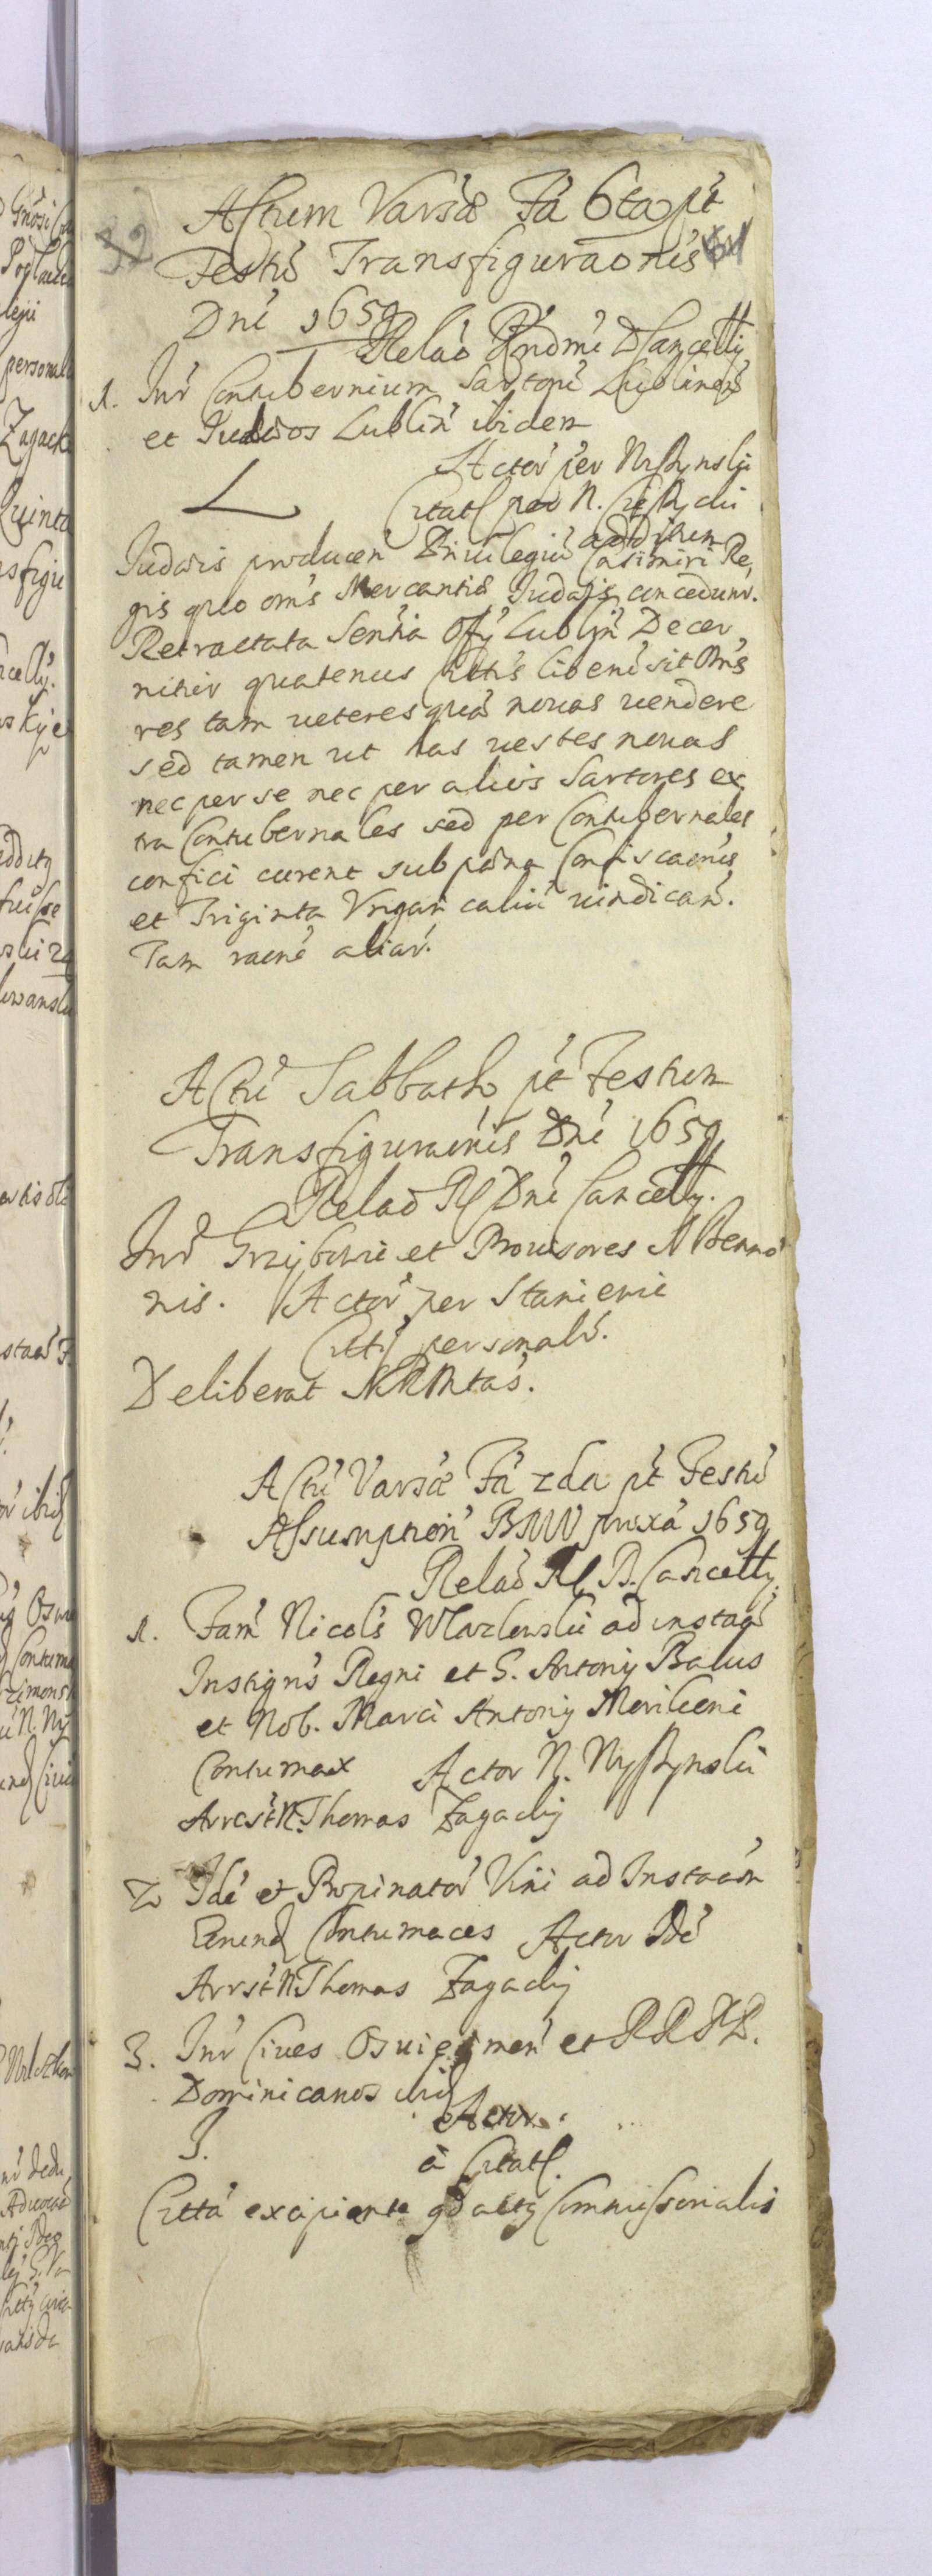 Actum Varsae Fa 6ta pt
32
Festu Transfiguraonis
Dni 1659
Relao Rndmi D Cancelly
1. Intr Contubernium Sartoru Lublinen
et Iudaeos Lublin ibidem
Actor per Nyszynski
L Citat per N.
additum
Iudaeis producen Priuilegiu Casimiri Re
gis quo oms Mercantias Iudaeis conceduntr.
Retractata Sentia Offy Lublin Decer
nitur quatenus Cittis liberu sit oms
res tam ueteres qua nouas uendere
sed tamen ut has uestes nouas
nec per se nec per alios Sartores ex
tra Contubernales sed per Contubernales
confici curent sub paena Confiscaonis
et Triginta Vngari caliu uindican.
Tam raone aliar.
Actu Sabbatho pt Festum
Transfiguraonis Dni 1659
Relao R Dni Cancelly.
Intr Grzybowie et Prouisores S Benno
nis. Actor per Staniewie
Citti personalr.
Deliberat SRMtas.
Actu Varsae Fa 2da pt Festu
Assumption BMV proxa 1659
Relao R D. Cancelly.
1. Fam Nicols Wlazlowski ad instaa
Instigris Regni et G. Antony Balus
et Nob. Marci Antony
Contumax Actor N. Nyszynski
Arrest N. Thomas Zagacky
2 Ide et Propinator Vini ad Instaon
Eorund Contumaces Actor Ide
Arrst N Thomas Zagacky
3. Intr Ciues Osuiecimen et RRPP.
Dominicanos ibid
Actor
3. a Citat.
Citta excipiente qd actq Commissorialis